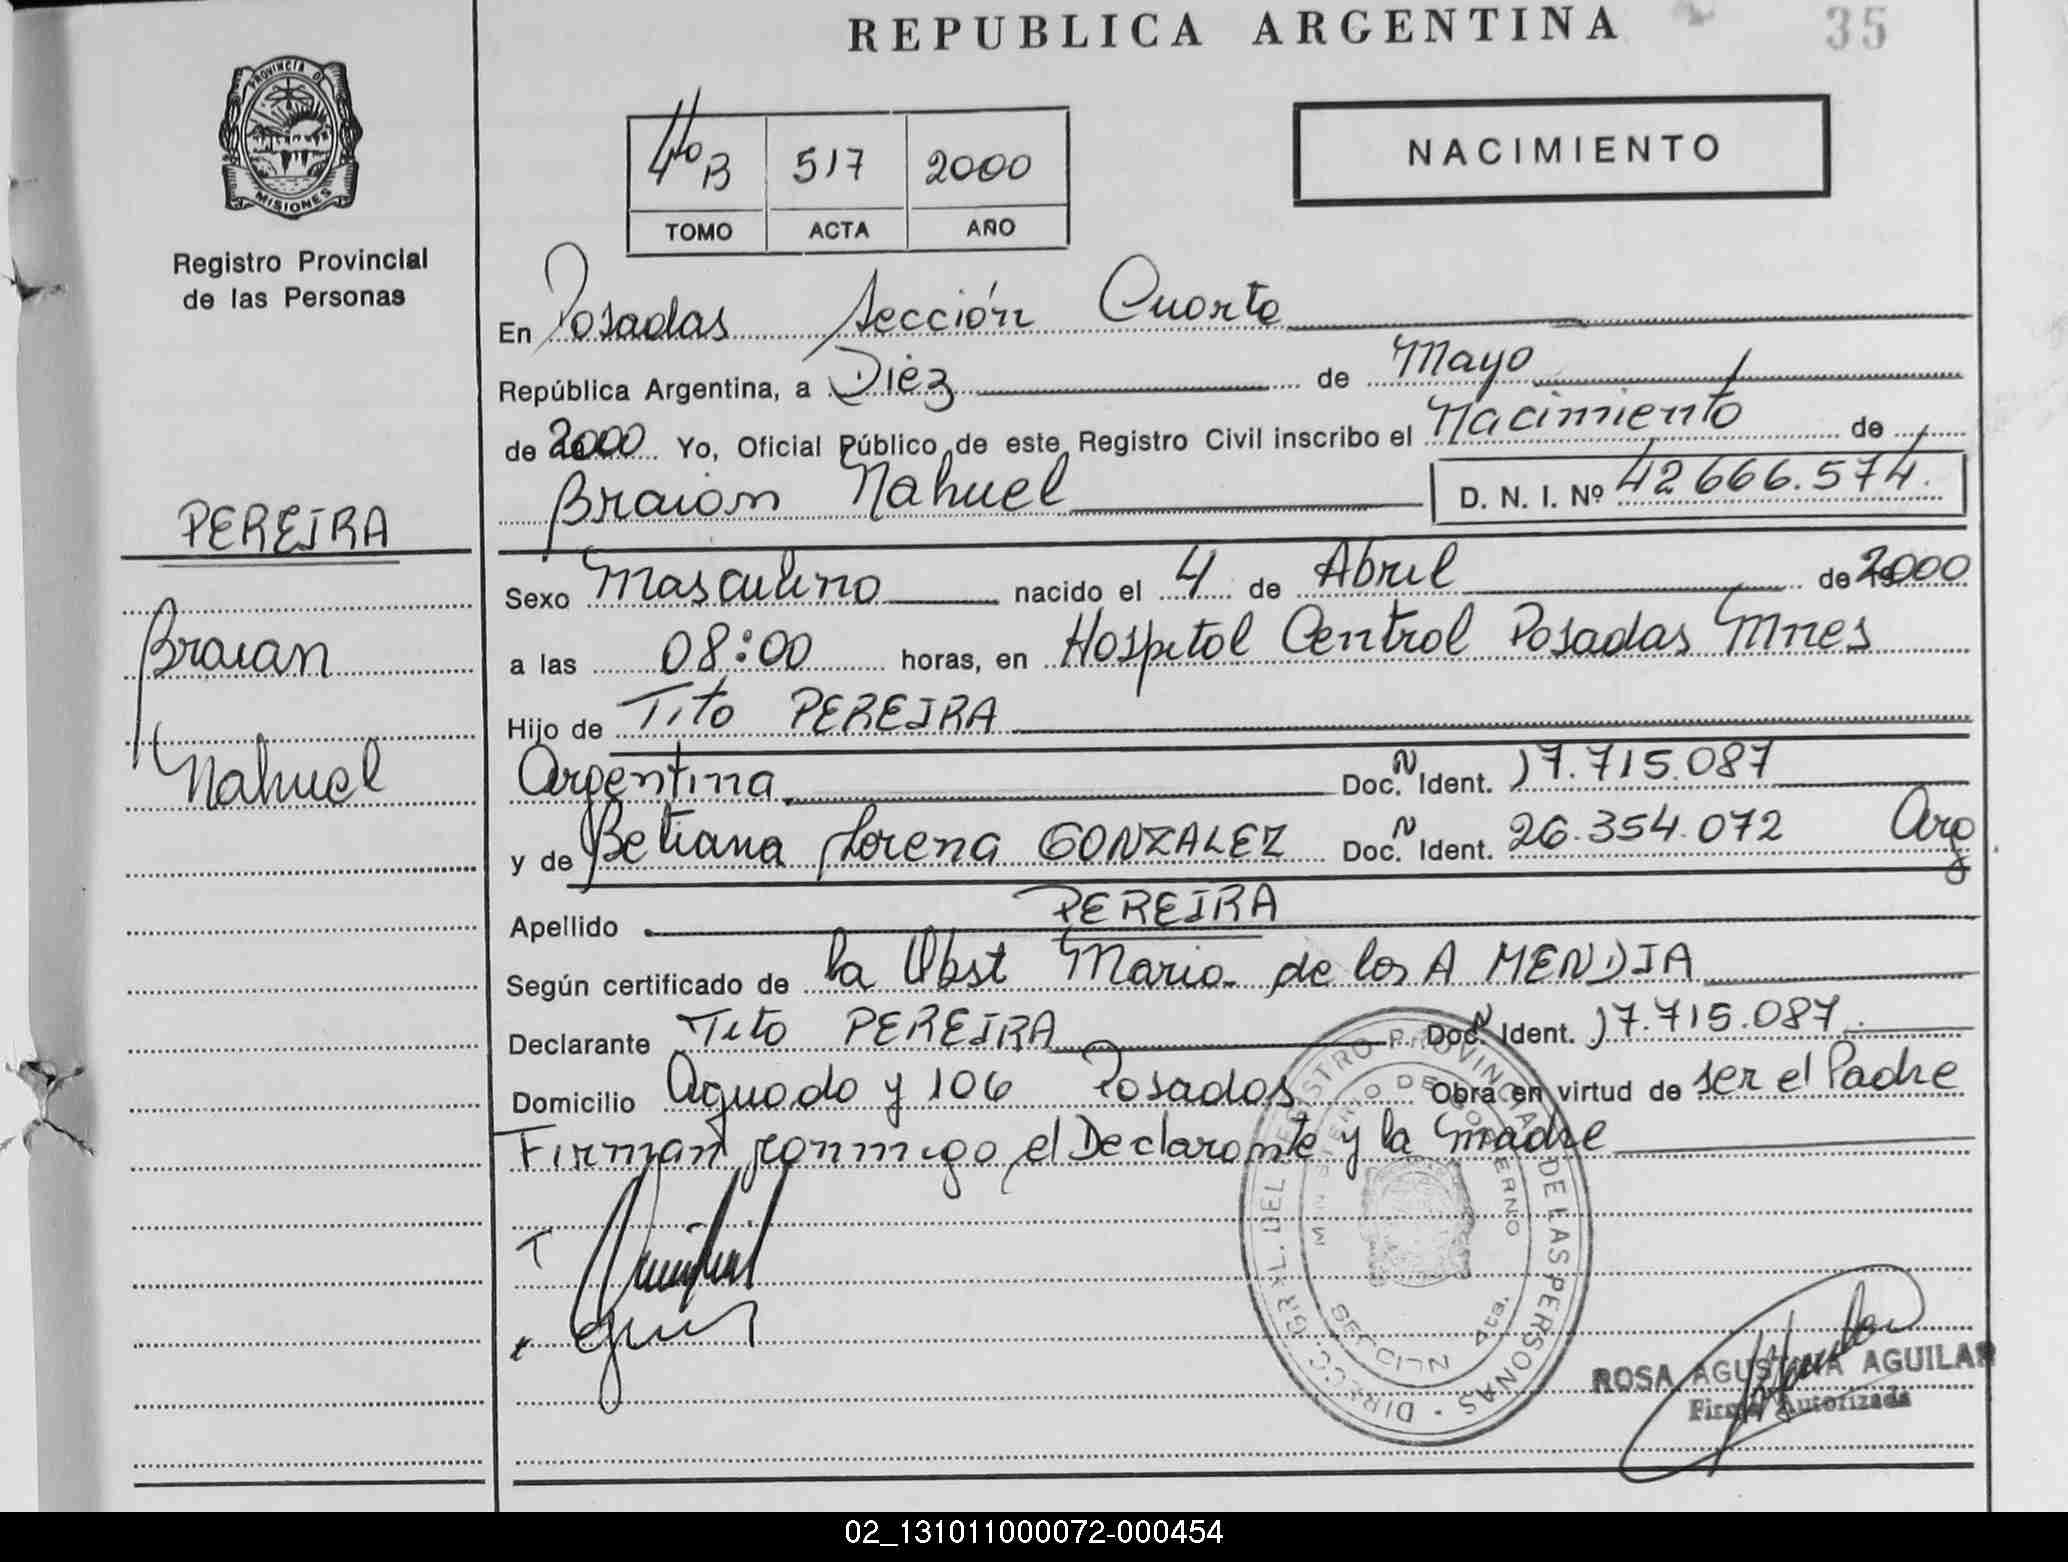 REPUBLICA ARGENTINA
35
PROVINCIA DE
MISIONES
Registro Provincial
de las Personas
4to B 517 2000
TOMO ACTA AÑO
NACIMIENTO
En Posadas Sección Cuarta
República Argentina, a Diez de Mayo
de 2000 Yo, Oficial Público de este Registro Civil inscribo el Nacimiento de
Braian Nahuel D. N. I. Nº 42666.574.
PEREIRA
Braian
Nahuel
Sexo Masculino nacido el 4 de Abril de 2000
a las 08:00 horas, en Hospital Central Posadas Mnes
Hijo de Tito PEREIRA
Argentina Doc. N Ident. 17.715.087
y de Betiana Lorena GONZALEZ Doc. N Ident. 26.354.072 Arg
Apellido PEREIRA
Según certificado de la Obst Maria de los A MENDIA
Declarante Tito PEREIRA Doc. N Ident. 17.715.087
Domicilio Aguado y 106 Posadas Obra en virtud de ser el Padre
Firman conmigo el Declarante y la Madre
DIRECC. GRAL. DEL REGISTRO PROVINCIAL DE LAS PERSONAS
MINISTERIO DE GOBIERNO
ROSA AGUSTINA AGUILAR
Firma Autorizada
02_131011000072-000454